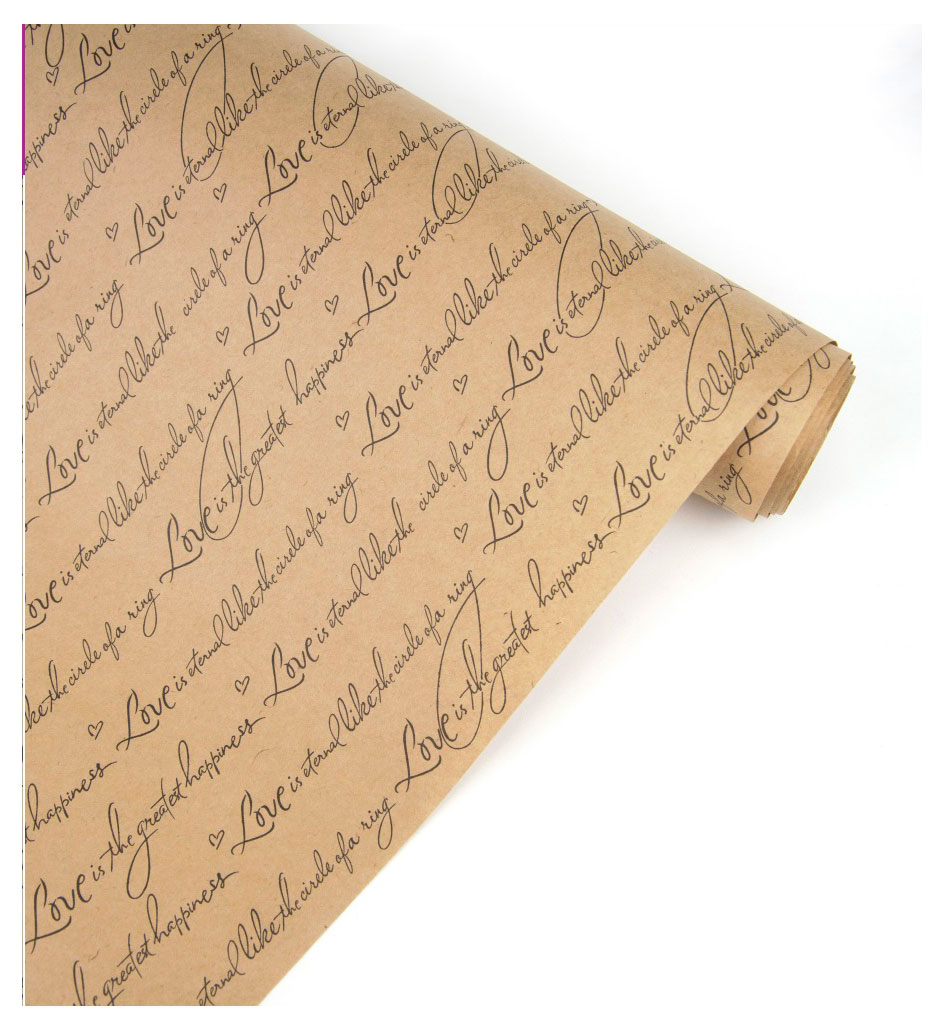 Love
happiness
Love is eternal like the circle of a ring
Love is eternal like the circle of a ring
the circle of a ring Love is eternal like
Love is eternal like the circle of a ring
Love is eternal like the circle of a ring
like the circle of a ring Love is eternal like the
Love is the greatest happiness Love is eternal like the circle of a ring
Love is eternal like the circle of a ring
happiness Love is eternal like the circle of a ring
Love is eternal like the circle of a ring
Love is the greatest happiness Love is eternal like the circle of
Love is eternal like the circle of a ring
the greatest happiness
Love is the greatest happiness
eternal like the circle of a ring
Love
a ring